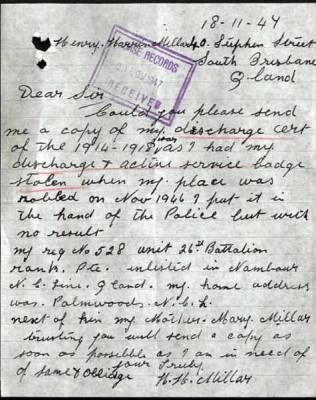 18-11-47
Henry. Harrison Millar 40. Stephen Street
South Brisbane
Q-land
BASE RECORDS
1947
RECEIVED
Dear Sir
Could you please send
me a copy of my discharge cert
of the 1914-1918 war I had my
discharge & active service badge
stolen when my place was
robbed on Nov 1946 I put it in
the hand of the Police but with
no result
my reg No 528 unit 26th Battalion
rank. Pte. inlisted in Nambour
N.C. Line. Q land. my home address
was. Palmwoods. N.C.L.
next of kin my Mother. Mary. Millar
trusting you will send a copy as
soon as possible as I am in need of
of same & Oblidge your Truly
H. H. Millar